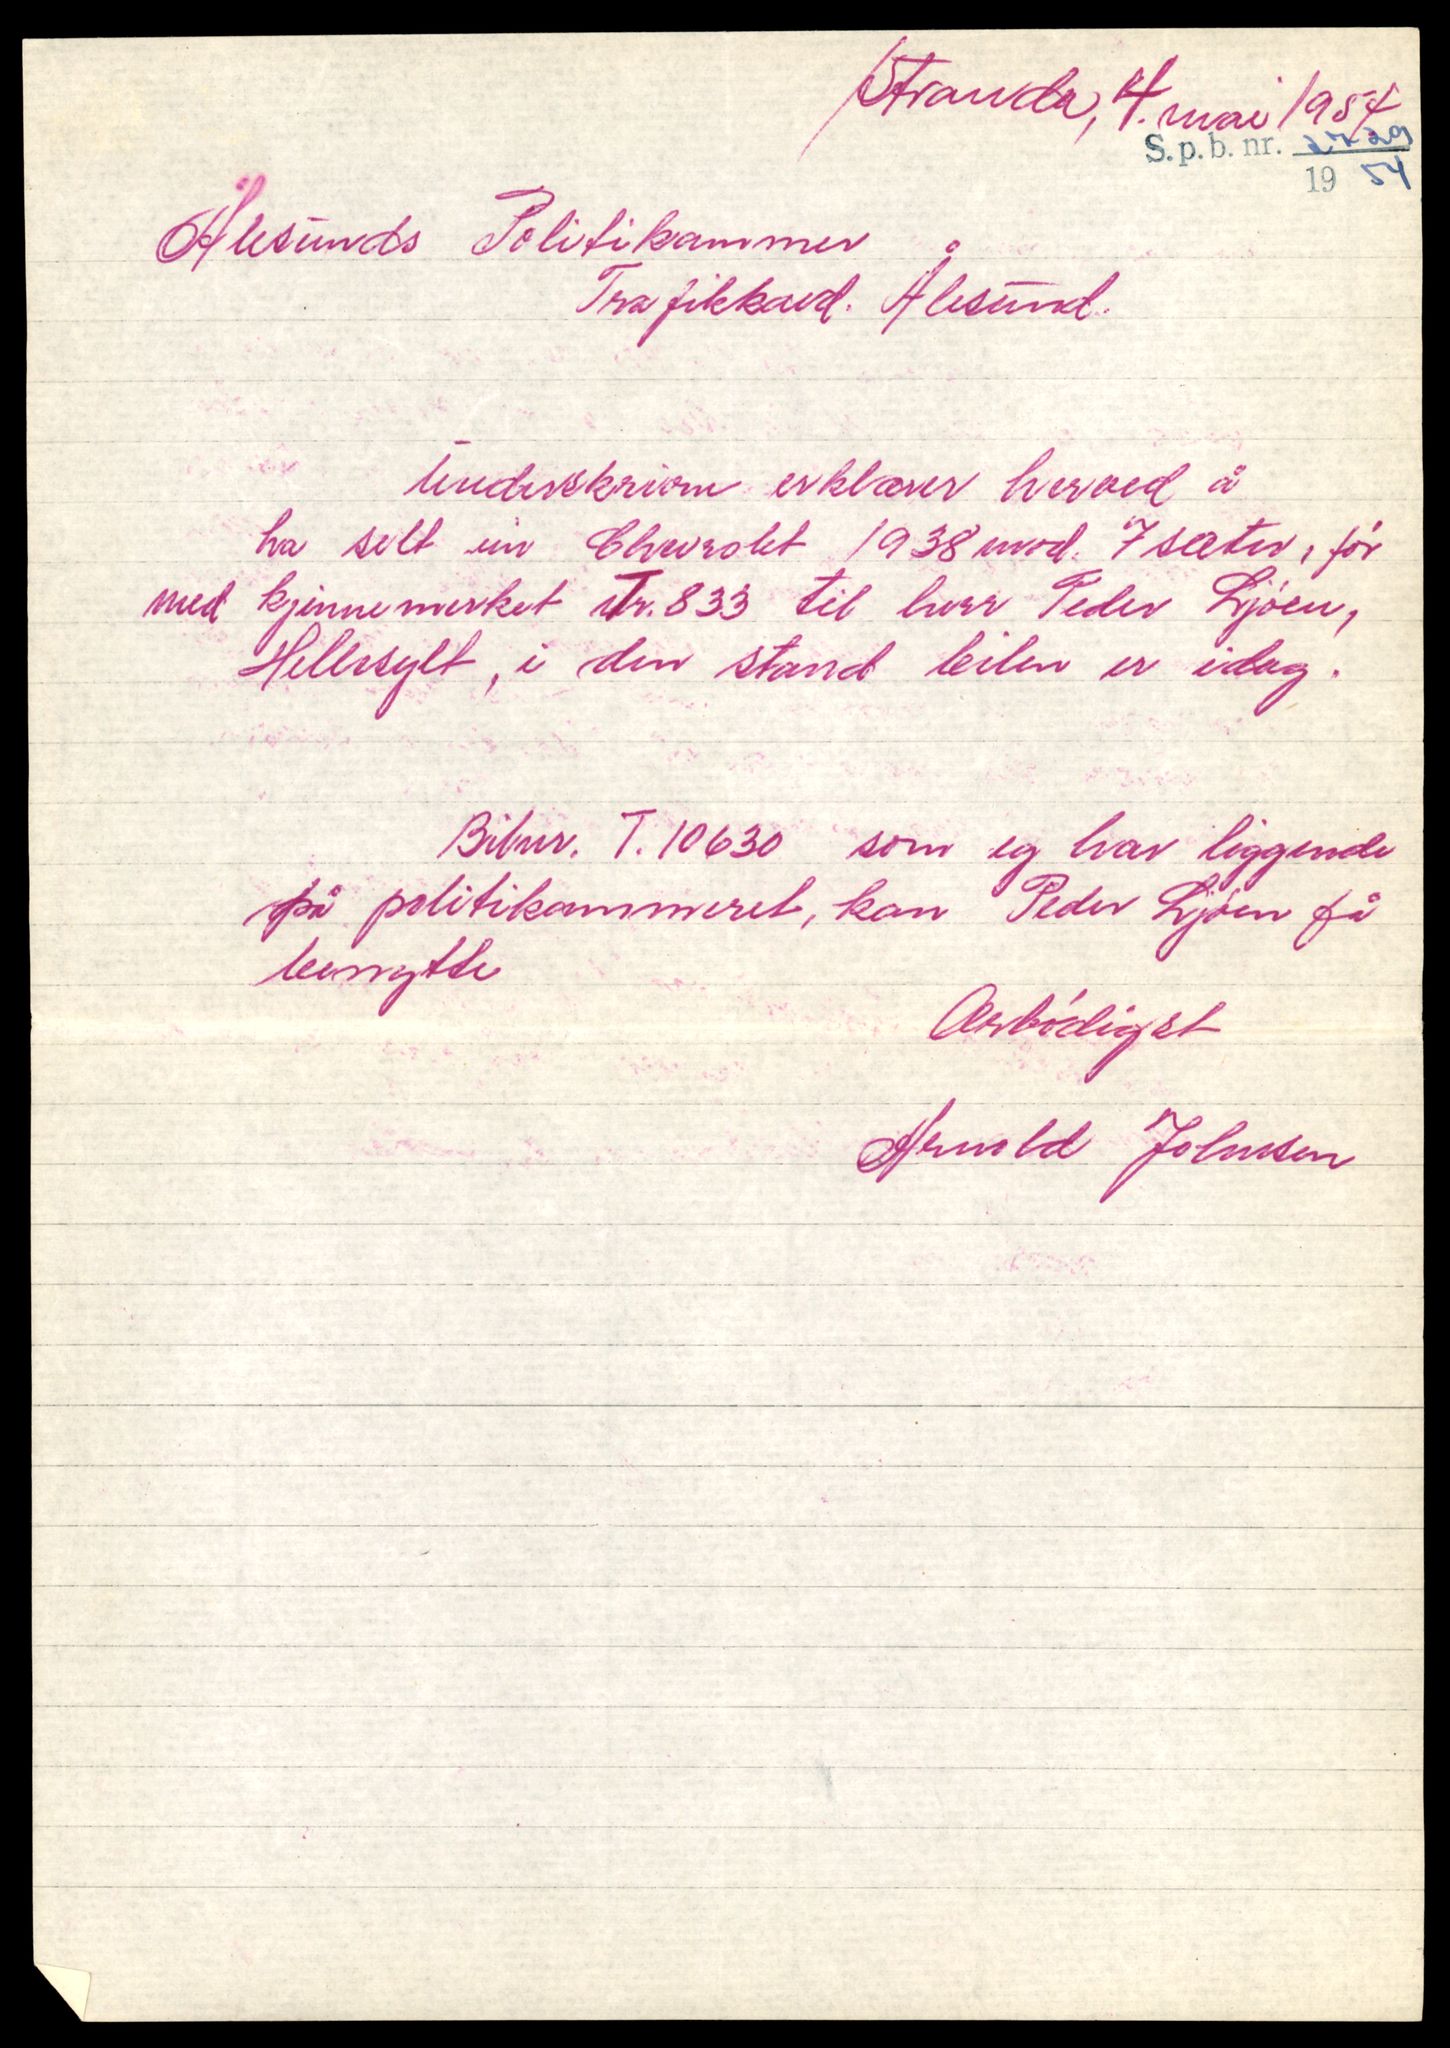 Stranda, 4. mai 1954
S.p.b. nr. 2729
19 54
Ålesunds Politikammer
Trafikkavd. Ålesund.
Underskriven erklærer herved å
ha selt ein Chevrolet 1938 mod. 7 seter, før
med kjennemerket Tr. 833 til herr Peder Ljøen,
Hellesylt, i den stand bilen er idag.
Bilnr. T. 10630 som eg har liggende
på politikammeret, kan Peder Ljøen få
benytte
Ærbødigst
Arnold Johnsen